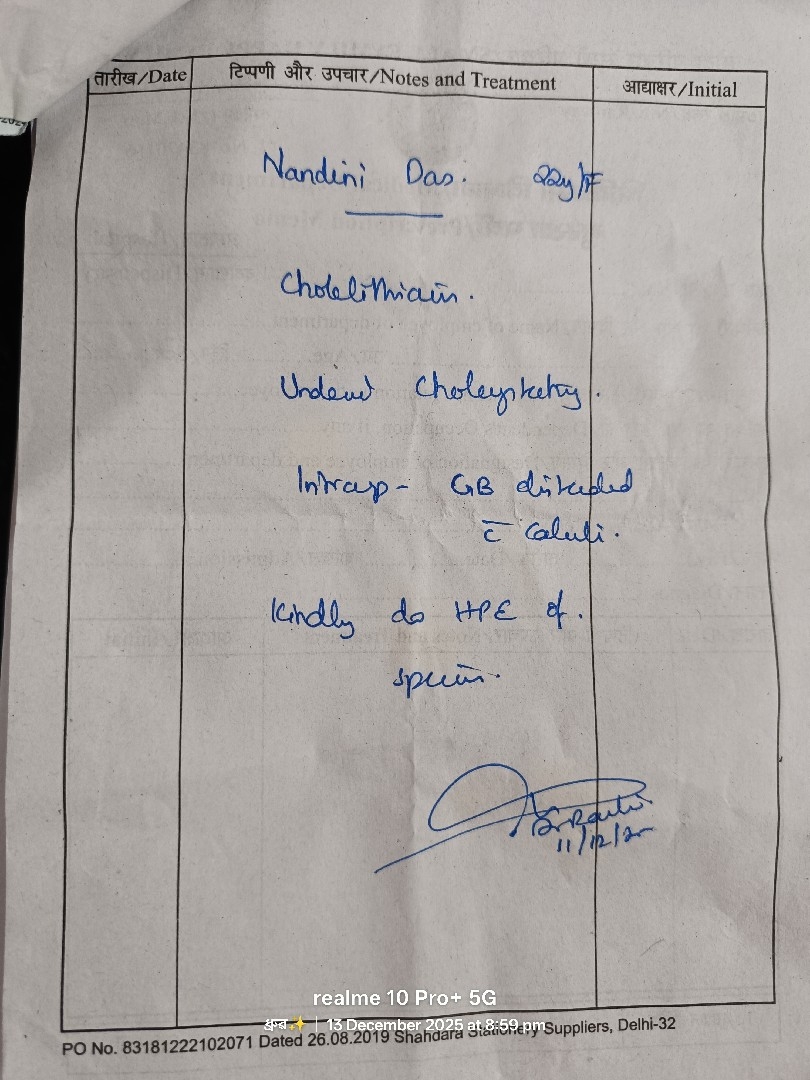 तारीख/Date टिप्पणी और उपचार/Notes and Treatment आद्याक्षर/Initial
Nandini Das. 22y/F
Cholelithiasis.
Underwent Cholecystectomy.
Intraop - GB distended
c̄ calculi.
Kindly do HPE of.
specimen.
11/12/25
realme 10 Pro+ 5G
ध्रुव✨ | 13 December 2025 at 8:59 pm
PO No. 83181222102071 Dated 26.08.2019 Shahdara Stationery Suppliers, Delhi-32